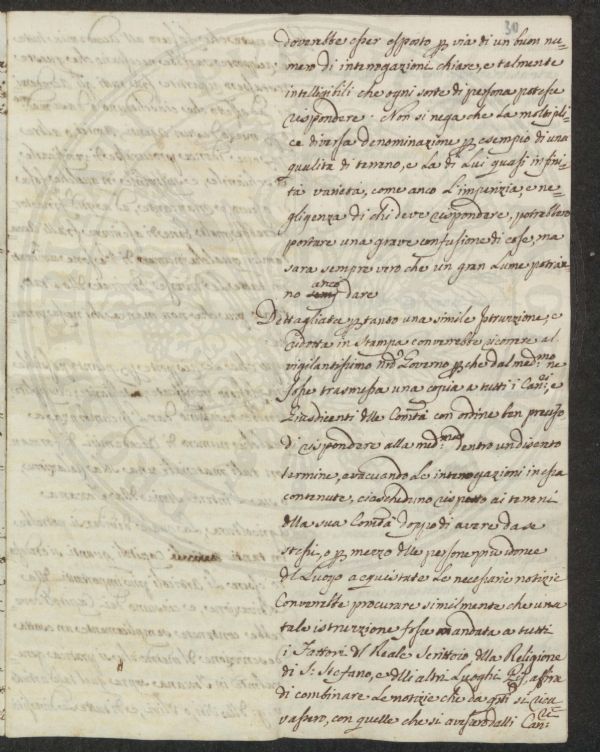 30
doverebbe esser esposto p. via di un buon nu-
mero di interrogazioni chiare, e talmente
intelligibili che ogni sorte di persona potesse
rispondere. Non si nega che la moltipli-
ce diversa denominazione p. esempio di una
qualità di terreno, e la di lui quasi infini-
tà varietà, come anco l'imperizia, e ne-
gligenza di chi deve rispondere, potrebbero
portare una grave confusione di cose, ma
sarà sempre vero che un gran lume potran-
no anco dare
Dettagliata p. tanto una simile Istruzione, e
ridotta in Stampa converrebbe ricorrere al
vigilantissimo Governo p. che dal med.mo ne
fosse trasmessa una copia a tutti i Can.ri e
Giusdicenti delle Comtà con ordine ben preciso
di rispondere alla med.ma dentro un discreto
termine, evacuando le interrogazioni in essa
contenute, ciascheduno rispetto ai terreni
della sua Comtà doppo di avere da se
stessi, o p. mezzo delle persone più idonee
del Luogo acquistate le necessarie notizie
Converrebbe procurare similmente che una
tale istruzzione fosse mandata a tutti
i Fattori del Reale Scrittoio della Religione
di S. Stefano, e delli altri Luoghi Pij affine
di combinare le notizie che da q.ti si rica-
vassero, con quelle che si avessero dalli Can.ri